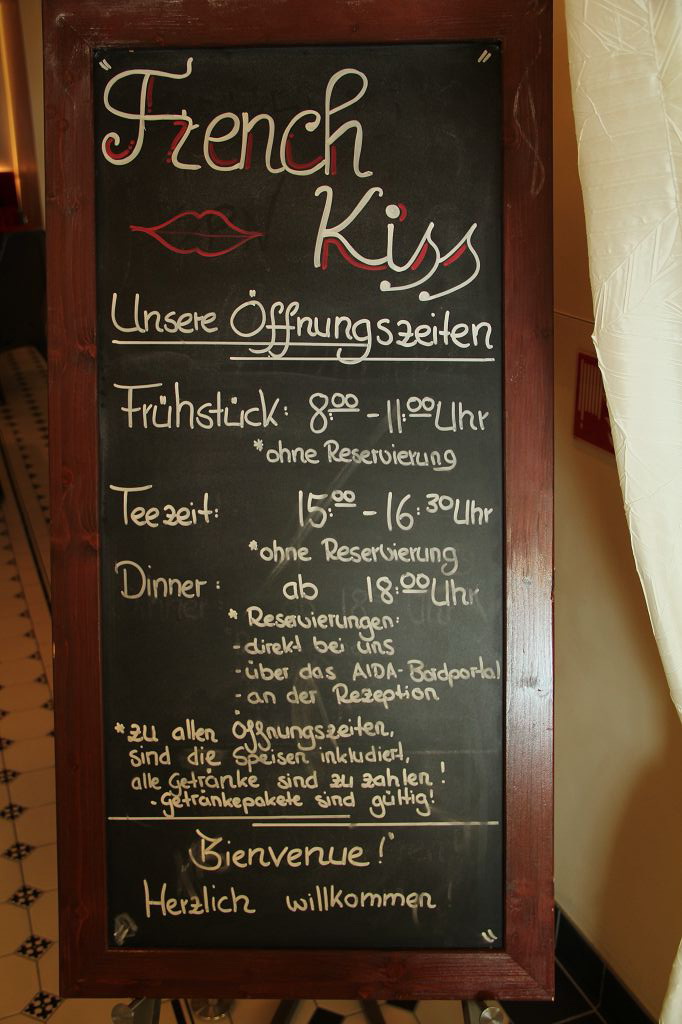 French
Kiss
Unsere Öffnungszeiten
Frühstück: 8:00 - 11:00 Uhr
*ohne Reservierung
Teezeit: 15:00 - 16:30 Uhr
*ohne Reservierung
Dinner: ab 18:00 Uhr
* Reservierungen:
- direkt bei uns
- über das AIDA-Bordportal
- an der Rezeption
*zu allen Öffnungszeiten,
sind die Speisen inkludiert,
alle Getränke sind zu zahlen!
- Getränkepakete sind gültig!
Bienvenue!
Herzlich willkommen